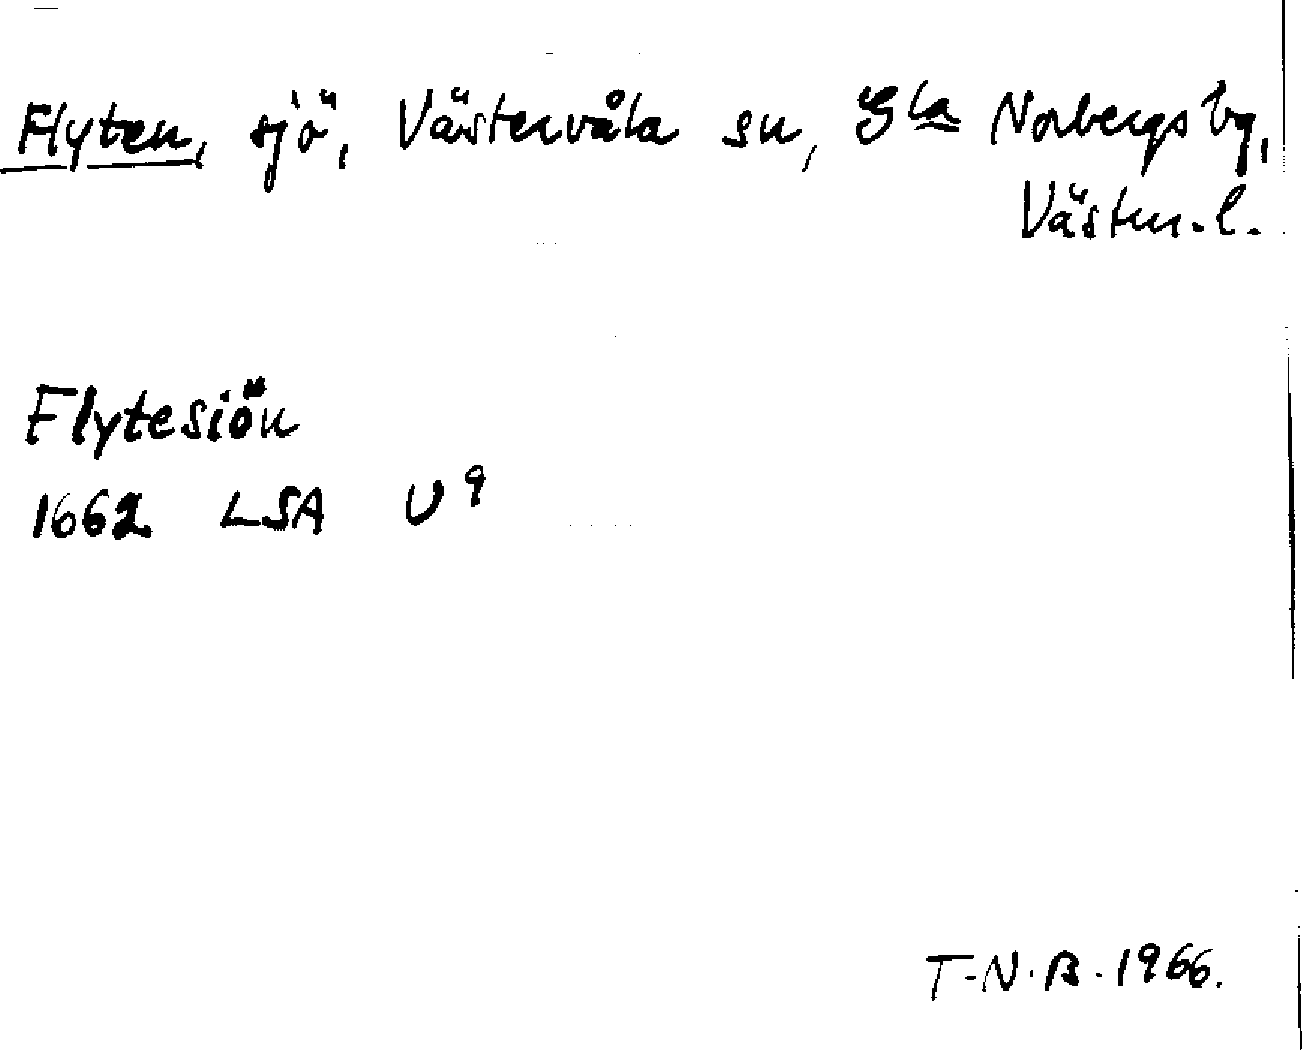 Flyten, sjö, Västervåla sn, Gla Norbergs bg,
Västm. l.
Flytesiön
1662 LSA U 9
T.N.B. 1966.